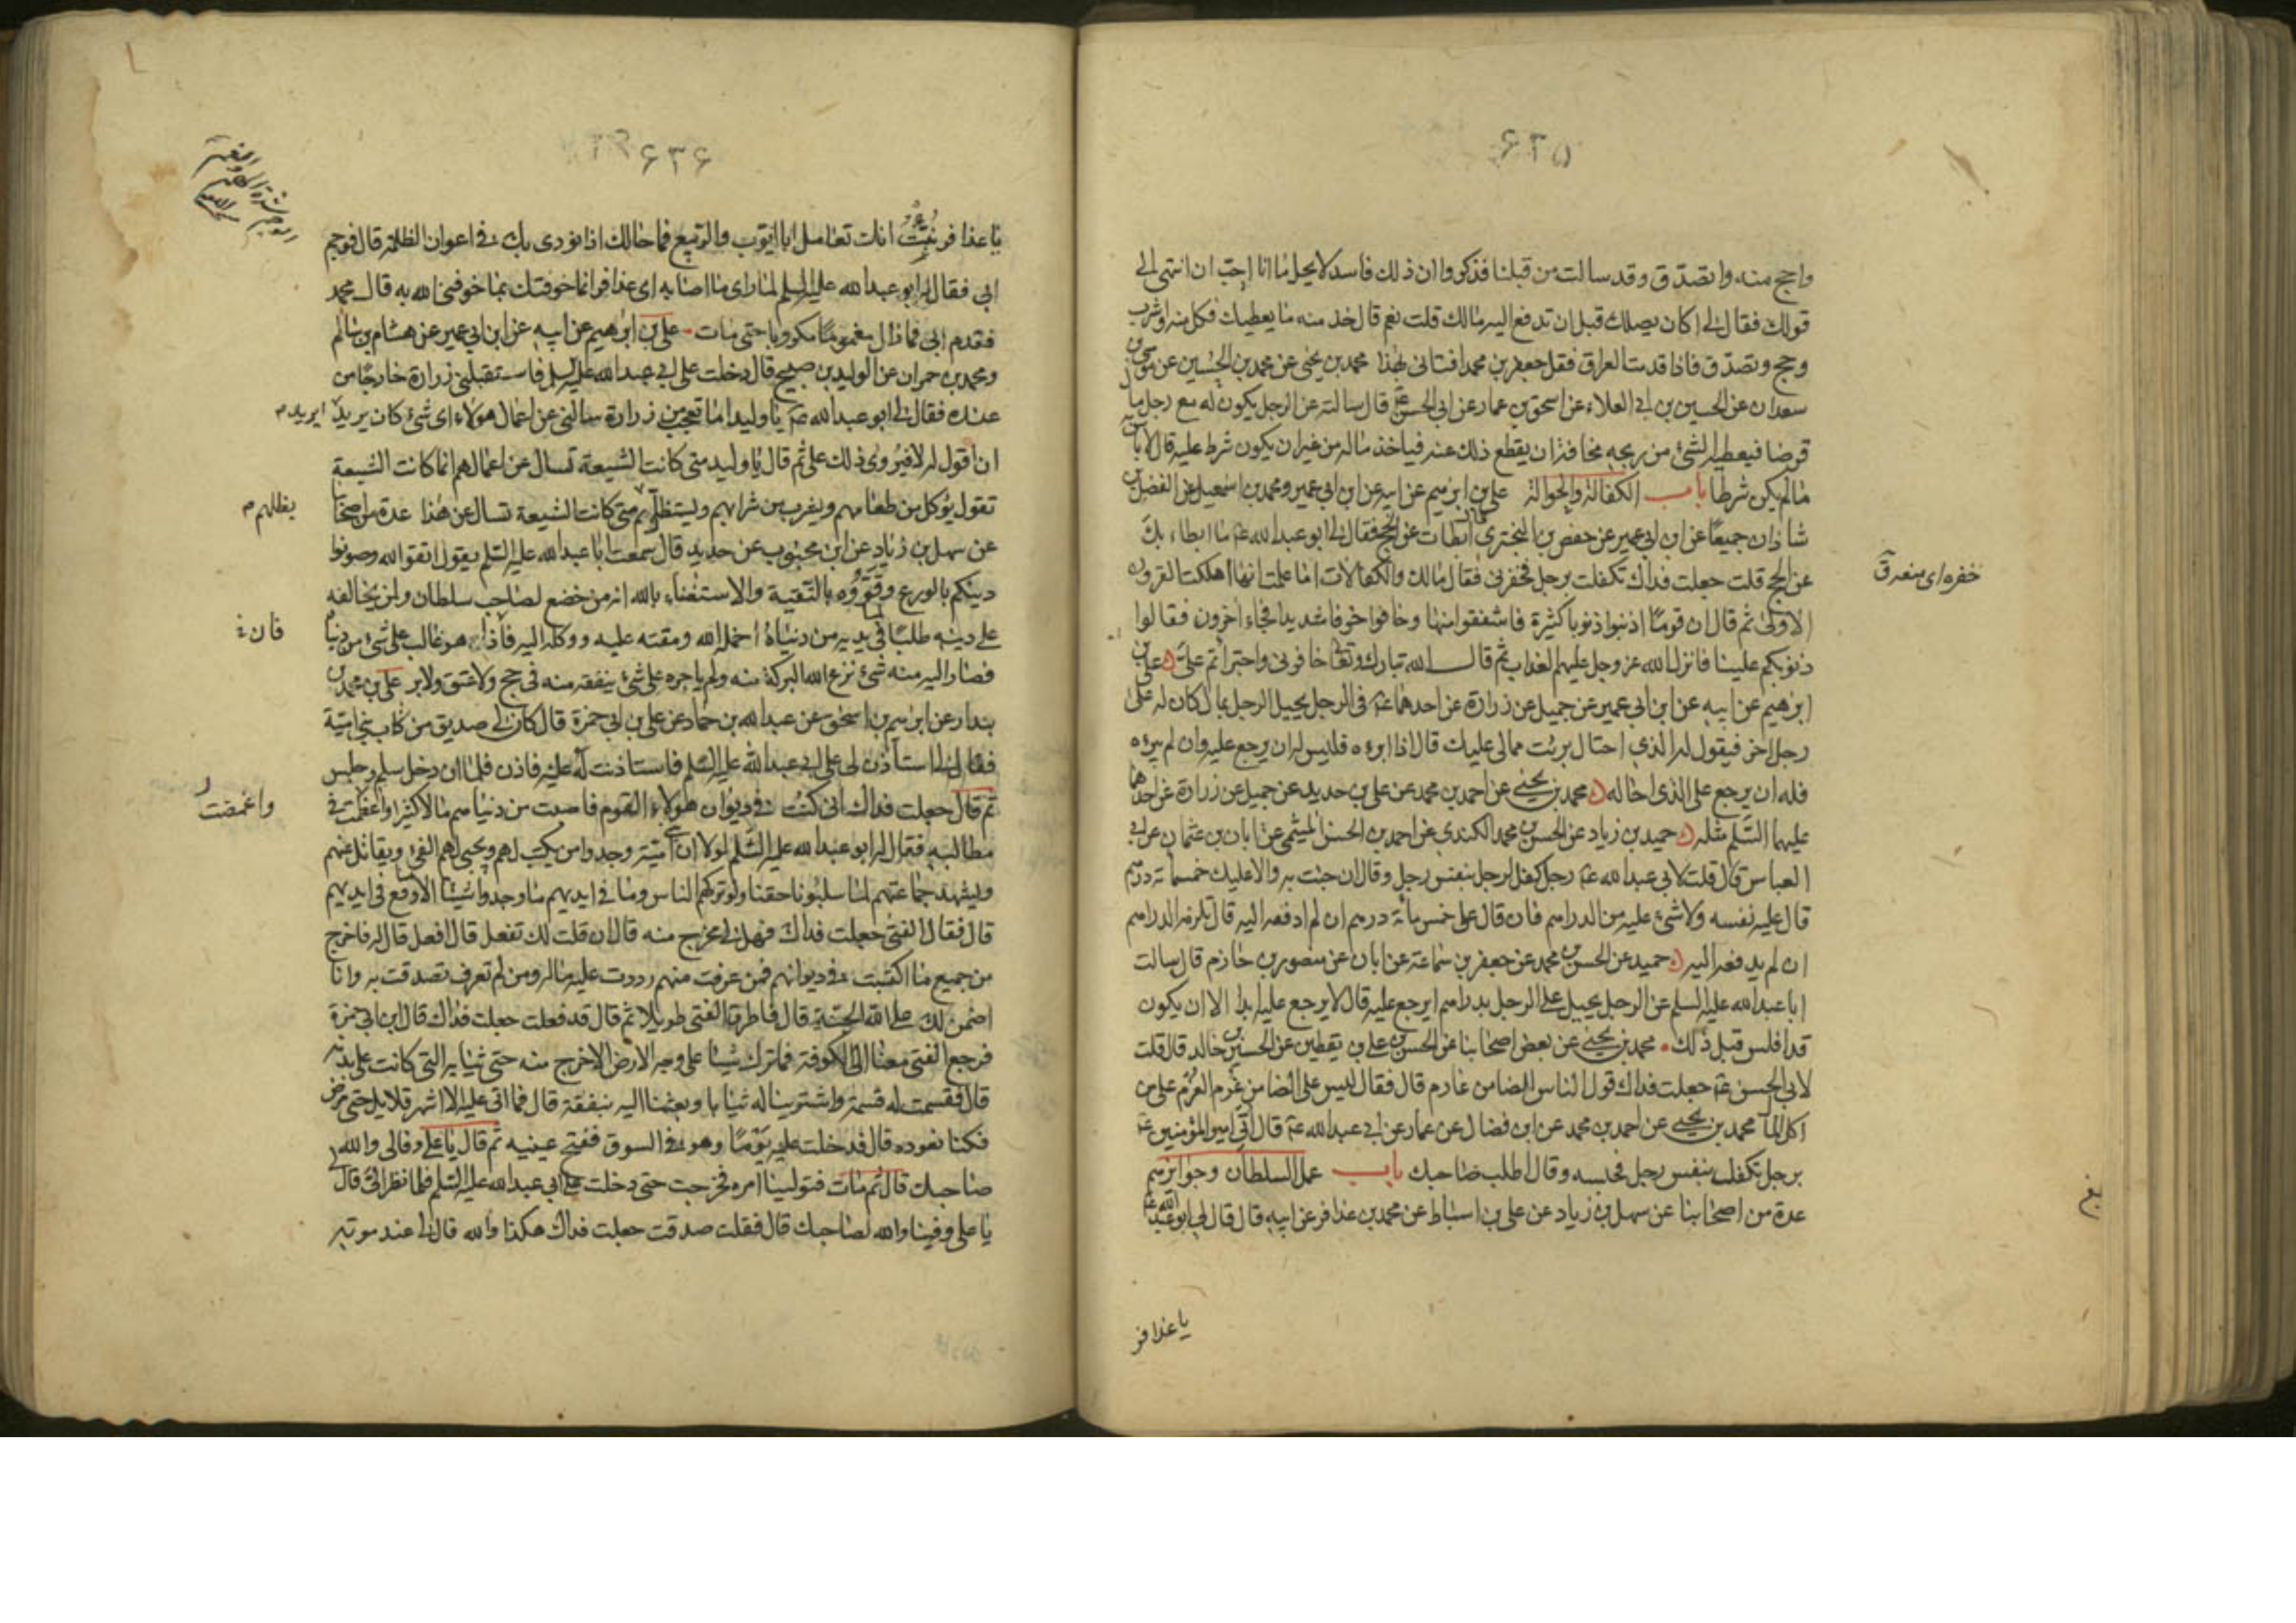 ۶۳۵
واحج منه واتصدق وقد سالت من قبلنا فذكروا ان ذلك فاسد لا يحل فانا احب ان انتهى الى
قولك فقال لى اكان يصلك قبل ان تدفع اليه مالك قلت نعم قال خذ منه ما يعطيك فكل منه واشرب
وحج وتصدق فاذا قدمت العراق فقل جعفر بن محمد افتانى بهذا محمد بن يحيى عن محمد بن الحسين عن موسى بن
سعدان عن الحسين بن ابى العلاء عن اسحق بن عمار عن ابى الحسن ع قال سالته عن الرجل يكون له مع رجل مال
قرضا فيعطيه الشئ من ربحه مخافة ان يقطع ذلك عنه فياخذ ماله من غير ان يكون شرط عليه قال لا باس به
ما لم يكن شرطا باب الكفالة والحوالة على بن ابرهيم عن ابيه عن ابن ابى عمير ومحمد بن اسمعيل عن الفضل بن
شاذان جميعا عن ابن ابى عمير عن حفص بن البخترى قال ابطات عن الحج فقال لى ابو عبدالله ع ما ابطاء بك
عن الحج قلت جعلت فداك تكفلت برجل فخفرنى فقال مالك والكفالات اما علمت انها اهلكت القرون
الاولى ثم قال ان قوما اذنبوا ذنوبا كثيرة فاشفقوا منها وخافوا خوفا شديدا فجاء اخرون فقالوا
ذنوبكم علينا فانزل الله عز وجل عليهم العذاب ثم قال الله تبارك وتعالى خافونى واجتراتم على على بن
ابرهيم عن ابيه عن ابن ابى عمير عن جميل عن زرارة عن احدهما ع فى الرجل يحيل الرجل بمال كان له على
رجل اخر فيقول له الذى احتال برئت مما لى عليك قال اذا ابرءه فليس له ان يرجع عليه وان لم يبرءه
فله ان يرجع على الذى احاله محمد بن يحيى عن احمد بن محمد عن على بن حديد عن جميل عن زرارة عن احدهما
عليهما السلم مثله حميد بن زياد عن الحسن بن محمد الكندى عن احمد بن الحسن الميثمى عن ابان بن عثمان عن ابى
العباس قال قلت لابى عبدالله ع رجل كفل لرجل بنفس رجل وقال ان جئت به والا عليك خمسمائة درهم
قال عليه نفسه ولا شئ عليه من الدراهم فان قال على خمس مائة درهم ان لم ادفعه اليه قال تلزمه الدراهم
ان لم يدفعه اليه حميد عن الحسن بن محمد عن جعفر بن سماعة عن ابان عن منصور بن حازم قال سالت
ابا عبدالله عليه السلم عن الرجل يحيل على الرجل بدراهم ايرجع عليه قال لا يرجع عليه ابدا الا ان يكون
قد افلس قبل ذلك محمد بن يحيى عن بعض اصحابنا عن الحسن بن على بن يقطين عن الحسين بن خالد قال قلت
لابى الحسن ع جعلت فداك قول الناس الضامن غارم قال فقال ليس على الضامن غرم الغرم على من
اكل المال محمد بن يحيى عن احمد بن محمد عن ابن فضال عن عمار عن ابى عبدالله ع قال اتى امير المؤمنين ع
برجل تكفل بنفس رجل فحبسه وقال اطلب صاحبك باب عمل السلطان وجوايزهم
عدة من اصحابنا عن سهل بن زياد عن على بن اسباط عن محمد بن عذافر عن ابيه قال قال لى ابو عبدالله ع
خفره اى
يا عذافر
۶۳۶
يا عذافر نبئت انك تعامل ابا ايوب والربيع فما حالك اذا نودى بك فى اعوان الظلمة قال فوجم
ابى فقال له ابو عبدالله عليه السلم لما راى ما اصابه اى عذافر انما خوفتك بما خوفنى الله به قال محمد
فقدم ابى فما زال مغموما مكروبا حتى مات على بن ابرهيم عن ابيه عن ابن ابى عمير عن هشام بن سالم
ومحمد بن حمران عن الوليد بن صبيح قال دخلت على ابى عبدالله عليه السلم فاستقبلنى زرارة خارجا من
عنده فقال لى ابو عبدالله ع يا وليد اما تعجب من زرارة سالنى عن اعمال هؤلاء اى شئ كان يريد ايريد
ان اقول له لا فيروى ذلك على ثم قال يا وليد متى كانت الشيعة تسال عن اعمالهم انما كانت الشيعة
تقول يؤكل من طعامهم ويشرب من شرابهم ويستظل بظلهم متى كانت الشيعة تسال عن هذا عدة من اصحابنا
عن سهل بن زياد عن ابن محبوب عن حديد قال سمعت ابا عبدالله عليه السلم يقول اتقوا الله وصونوا
دينكم بالورع وقووه بالتقية والاستغناء بالله انه من خضع لصاحب سلطان ولمن يخالفه
على دينه طلبا لما فى يديه من دنياه اخمله الله ومقته عليه ووكله اليه فاذا هو غالب على شئ من دنياه
فصار اليه منه شئ نزع الله البركة منه ولم ياجره على شئ ينفقه منه فى حج ولا عتق ولا بر على بن محمد بن
بندار عن ابرهيم بن اسحق عن عبدالله بن حماد عن على بن ابى حمزة قال كان لى صديق من كتاب بنى امية
فقال لى استأذن لى على ابى عبدالله عليه السلم فاستاذنت له عليه فاذن فلما ان دخل سلم وجلس
ثم قال جعلت فداك انى كنت فى ديوان هؤلاء القوم فاصبت من دنياهم مالا كثيرا واغمضت فى
مطالبه فقال له ابو عبدالله عليه السلم لولا ان بنى امية وجدوا من يكتب لهم ويجبى لهم الفئ ويقاتل عنهم
ويشهد جماعتهم لما سلبونا حقنا ولو تركهم الناس وما فى ايديهم ما وجدوا شيئا الا ما وقع فى ايديهم
قال فقال الفتى جعلت فداك فهل لى مخرج منه قال ان قلت لك تفعل قال افعل قال له فاخرج
من جميع ما اكتسبت فى ديوانهم فمن عرفت منهم رددت عليه ماله ومن لم تعرف تصدقت به وانا
اضمن لك على الله الجنة قال فاطرق الفتى طويلا ثم قال قد فعلت جعلت فداك قال ابن ابى حمزة
فرجع الفتى معنا الى الكوفة فما ترك شيئا على وجه الارض الا خرج منه حتى ثيابه التى كانت على بدنه
قال فقسمت له قسمة واشترينا له ثيابا وبعثنا اليه بنفقة قال فما اتى عليه الا اشهر قلايل حتى مرض
فكنا نعوده قال فدخلت عليه يوما وهو فى السوق ففتح عينيه ثم قال يا على وفالى والله
صاحبك قال ثم مات فتولينا امره فخرجت حتى دخلت على ابى عبدالله عليه السلم فلما نظر الى قال
يا على وفينا والله لصاحبك قال فقلت صدقت جعلت فداك هكذا والله قال لى عند موته
بظلهم
فان
واغمضت